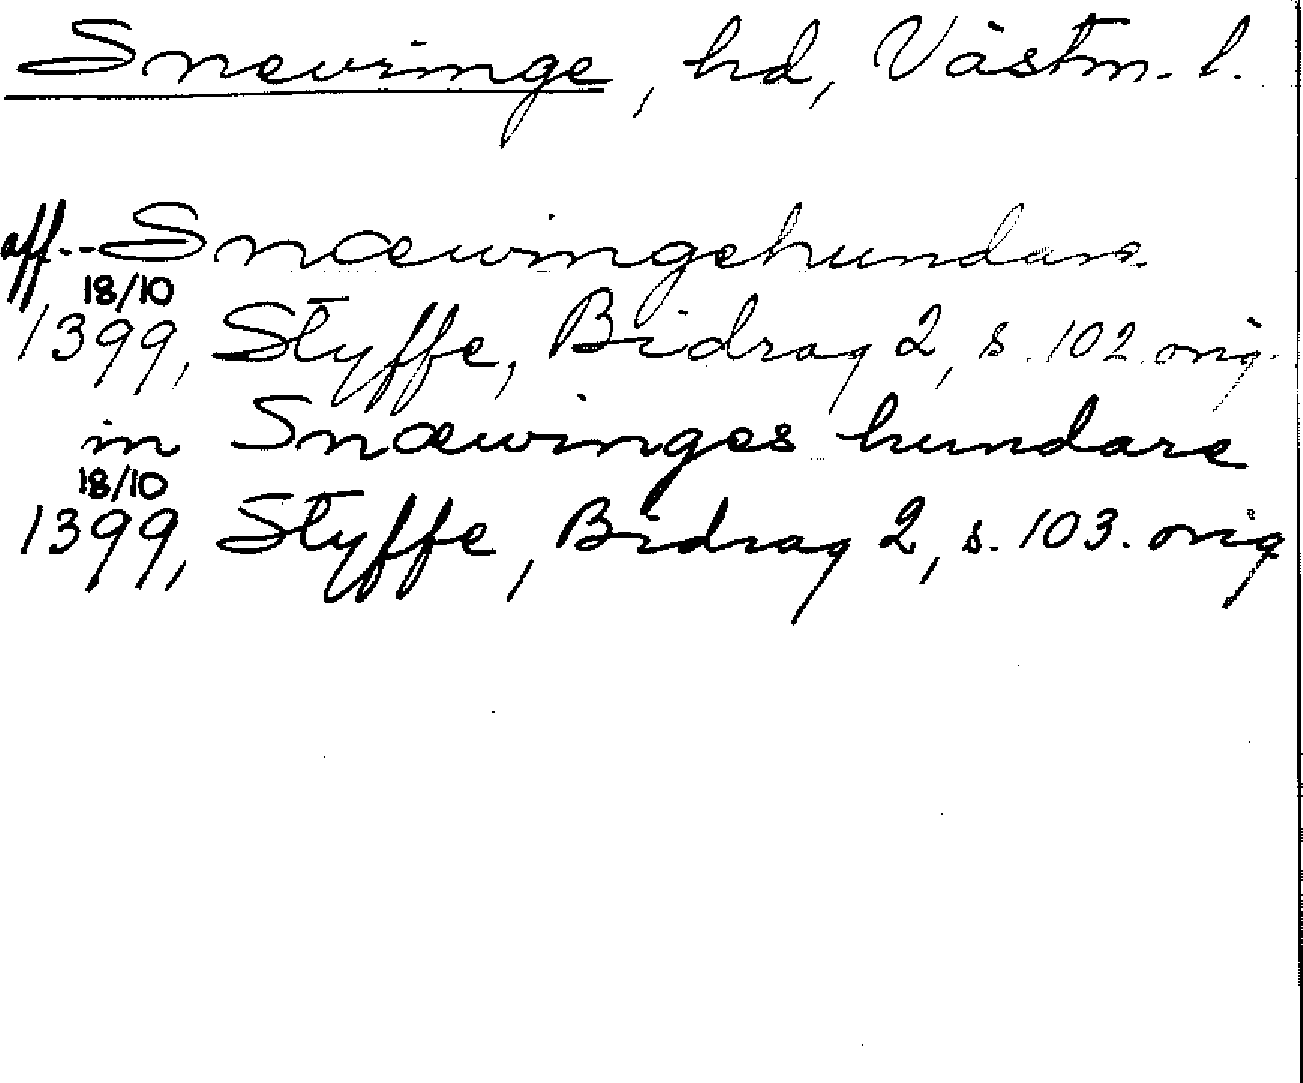 Snevringe, hd, Västm. l.
aff -- Snæwingehundare
18/10
1399, Styffe, Bidrag 2, s. 102. orig.
in Snæwinges hundare
18/10
1399, Styffe, Bidrag 2, s. 103. orig